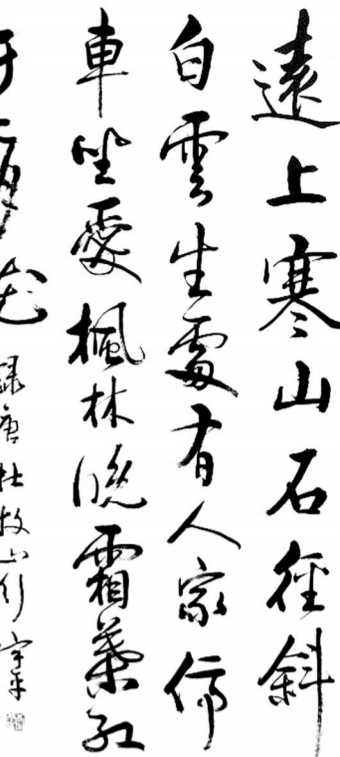 遠上寒山石徑斜
白雲生處有人家停
車坐愛楓林晚霜葉紅
于二月花 錄唐杜牧山行 宇平